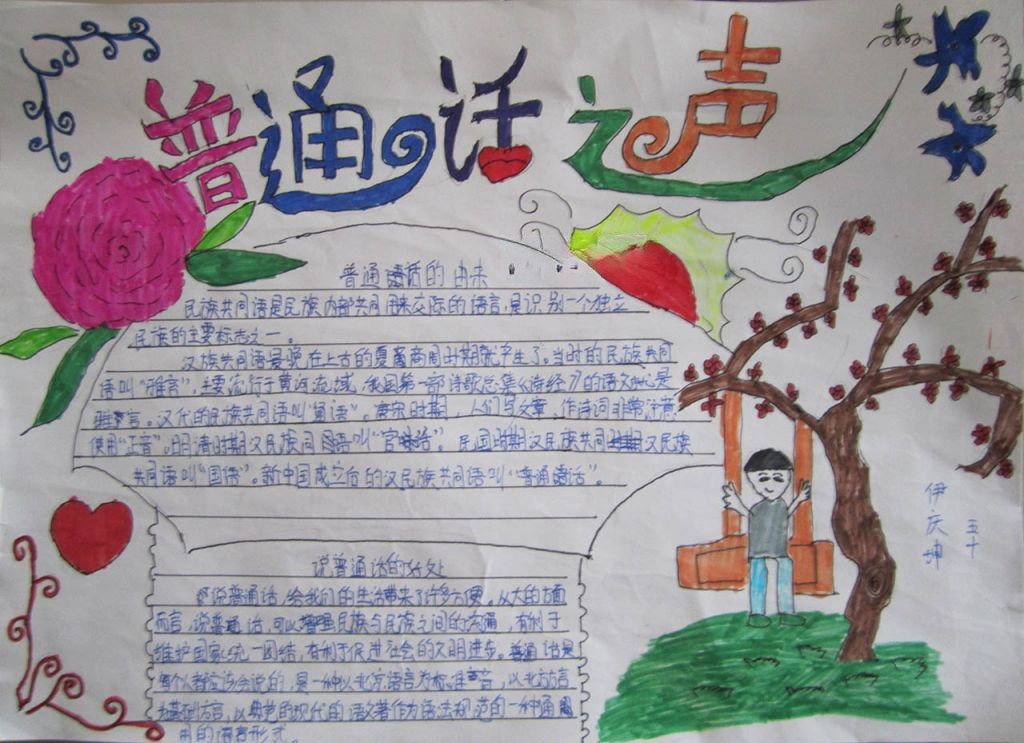 普通话之声
普通话的由来
民族共同语是民族内部共同用来交际的语言,是识别一个独立
民族的主要标志之一。
汉族共同语最晚在上古的夏商周时期就产生了。当时的民族共同
语叫“雅言”,主要流行于黄河流域,我国第一部诗歌总集《诗经》的语文就是
雅言。汉代的民族共同语叫“通语”。唐宋时期,人们写文章、作诗词非常注意
使用“正音”。明清时期汉民族同语叫“官话”。民国时期汉民族共同汉民族
共同语叫“国语”。新中国成立后的汉民族共同语叫“普通话”。
说普通话的好处
说普通话,给我们的生活带来了许多方便,从大的方面
而言,说普通话,可以增强民族与民族之间的沟通,有利于
维护国家统一团结,有利于促进社会的文明进步。普通话是
每个人都应该会说的,是一种以北京语言为标准声音,以北方方言
为基础方言,以典范的现代的语文著作为语法规范的一种通
用的语言形式。
伊庆坤
五十